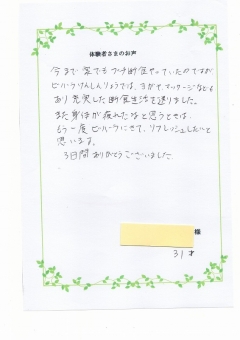 体験者さまのお声
今まで家でもプチ断食やっていたのですが
ヒルハークけんしんりょうでは、ヨガや、マッサージなども
あり充実した断食生活を送りました。
また身体が疲れたなと思うときは、
もう一度ヒルハークにきて、リフレッシュしたいと
思います。
3日間ありがとうございました
様
31才